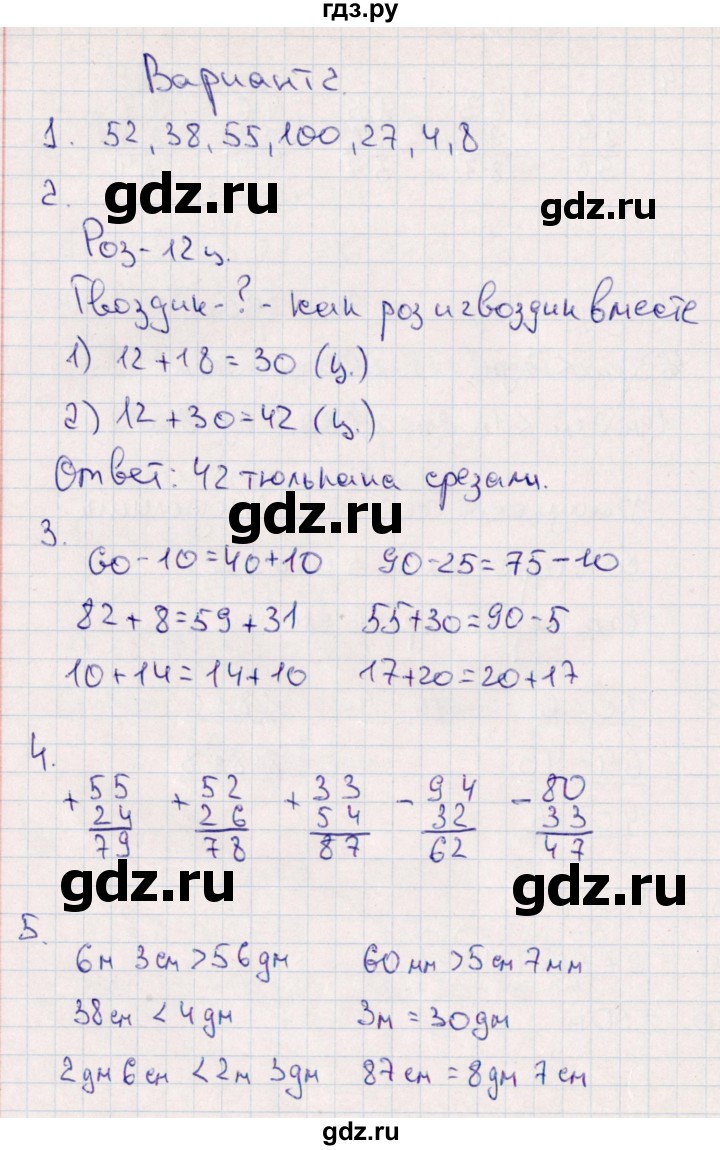 гдз.ру
Вариант 2.
1. 52, 38, 55, 100, 27, 4, 8
gdz.ru
gdz.ru
2.
Роз - 12 ц.
Гвоздик - ? - как роз и гвоздик вместе
1) 12 + 18 = 30 (ц.)
2) 12 + 30 = 42 (ц.)
Ответ: 42 тюльпана срезали.
gdz.ru
3.
60 - 10 = 40 + 10 90 - 25 = 75 - 10
82 + 8 = 59 + 31 55 + 30 = 90 - 5
10 + 14 = 14 + 10 17 + 20 = 20 + 17
4.
+ 55 + 52 + 33 - 94 - 80
24 26 54 32 33
79 78 87 62 47
gdz.ru
gdz.ru
5.
6м 3см > 56дм 60мм > 5см 7мм
38см < 4дм 3м = 30дм
2дм 6см < 2м 3дм 87см = 8дм 7см
gdz.ru